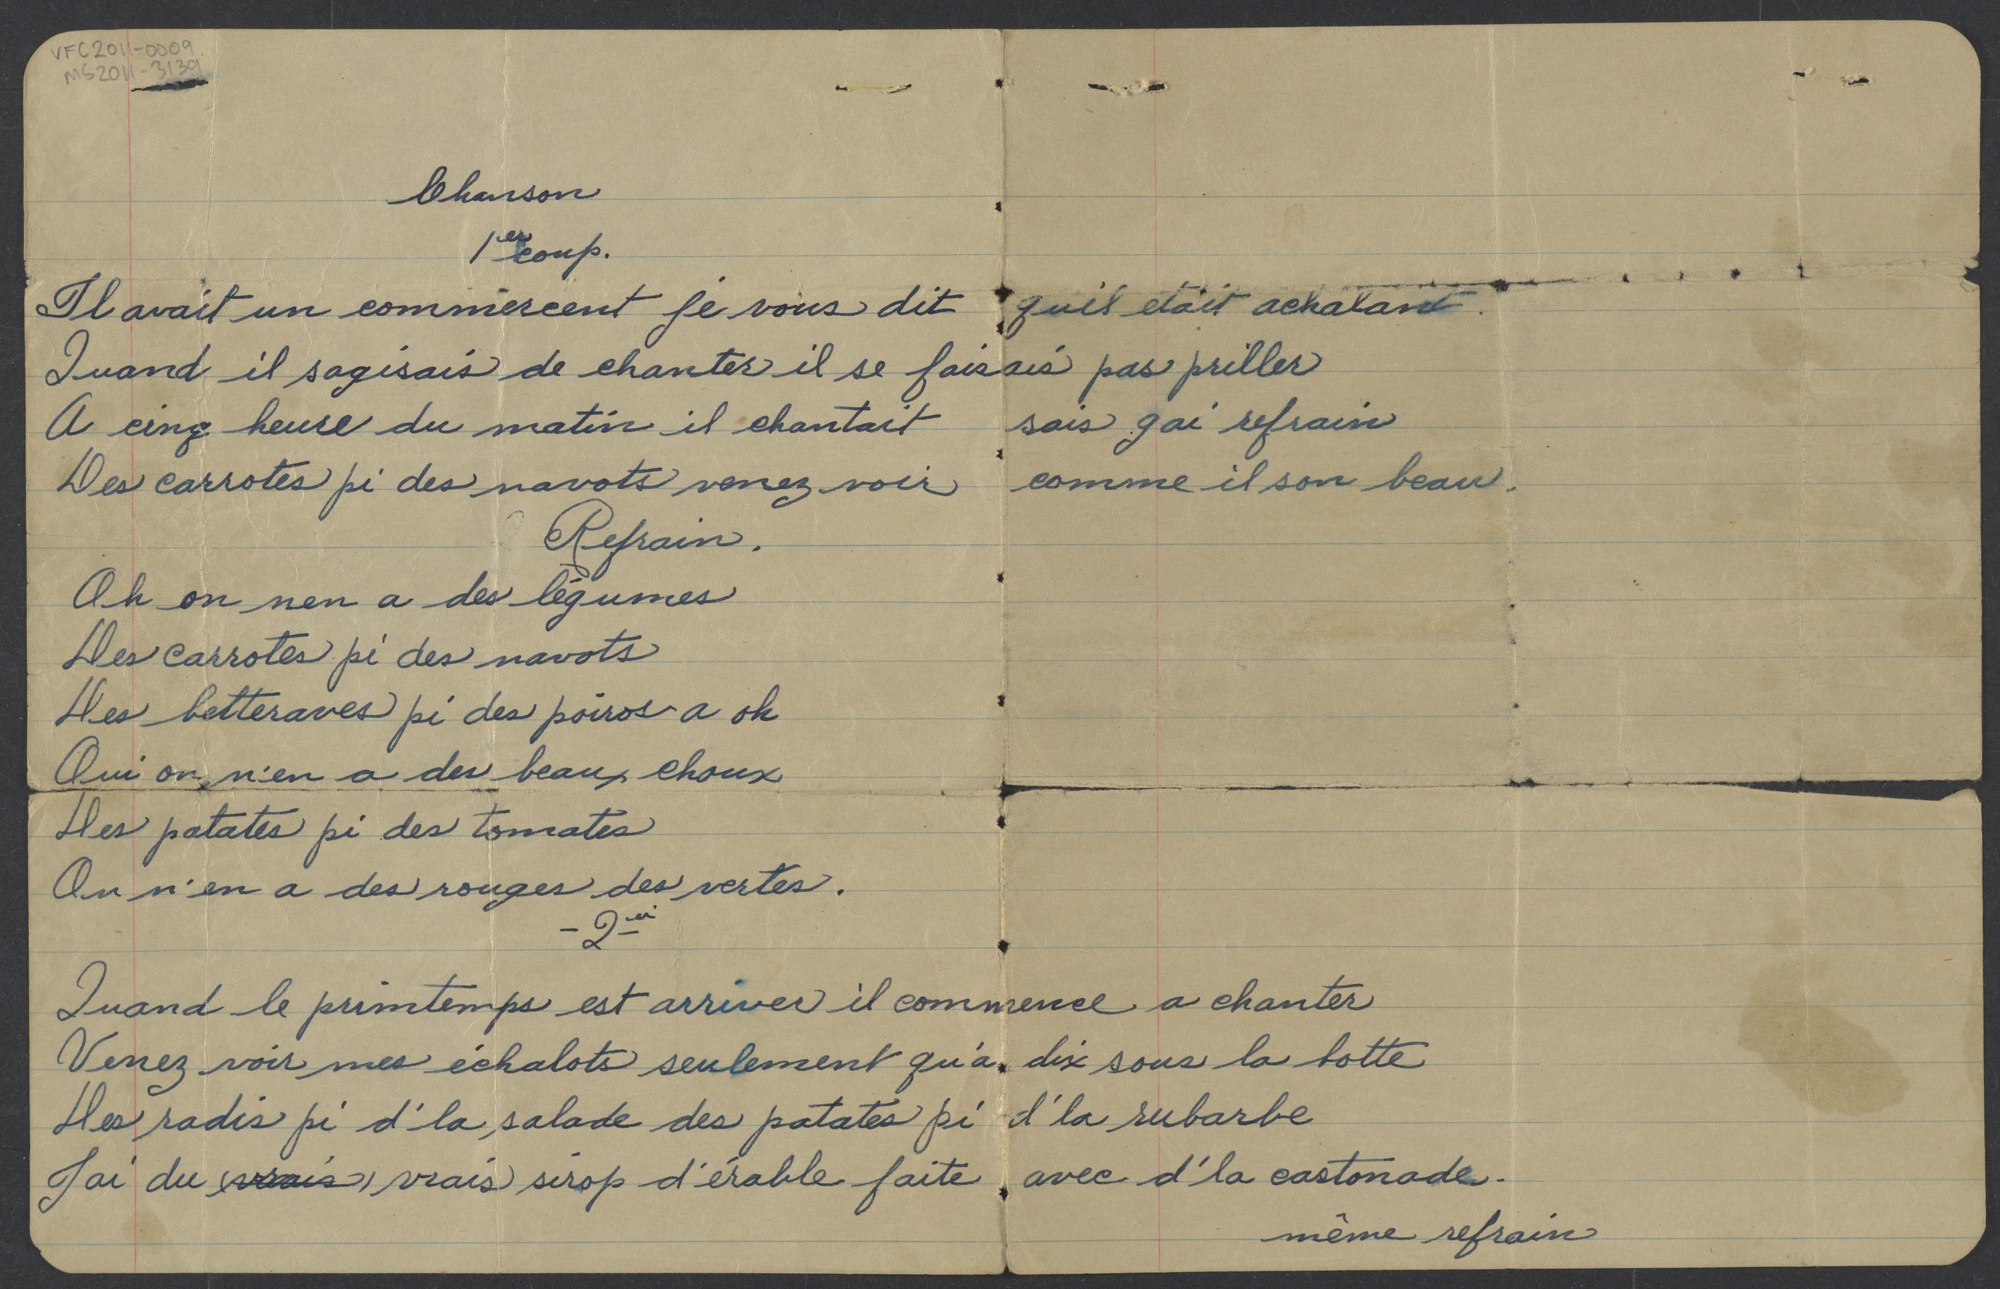 VFC2011-0009
MS2011-3139
Chanson
1er coup.
Il avait un commercent je vous dit quil etait achalant.
Quand il sagisais de chanter il se faisais pas priller
A cinq heure du matin il chantait sais gai refrain
Des carrotes pi des navots venez voir comme il son beau.
Refrain.
Oh on nen a des légumes
Des carrotes pi des navots
Des betteraves pi des poiros a oh
Oui on n'en a des beaux choux
Des patates pi des tomates
On n'en a des rouges des vertes.
-2ei
Quand le primtemps est arriver il commence a chanter
Venez voir mes échalots seulement qu'a dix sous la botte
Des radis pi d'la salade des patates pi d'la rubarbe
J'ai du (vrais) vrais sirop d'érable faite avec d'la castonade.
même refrain